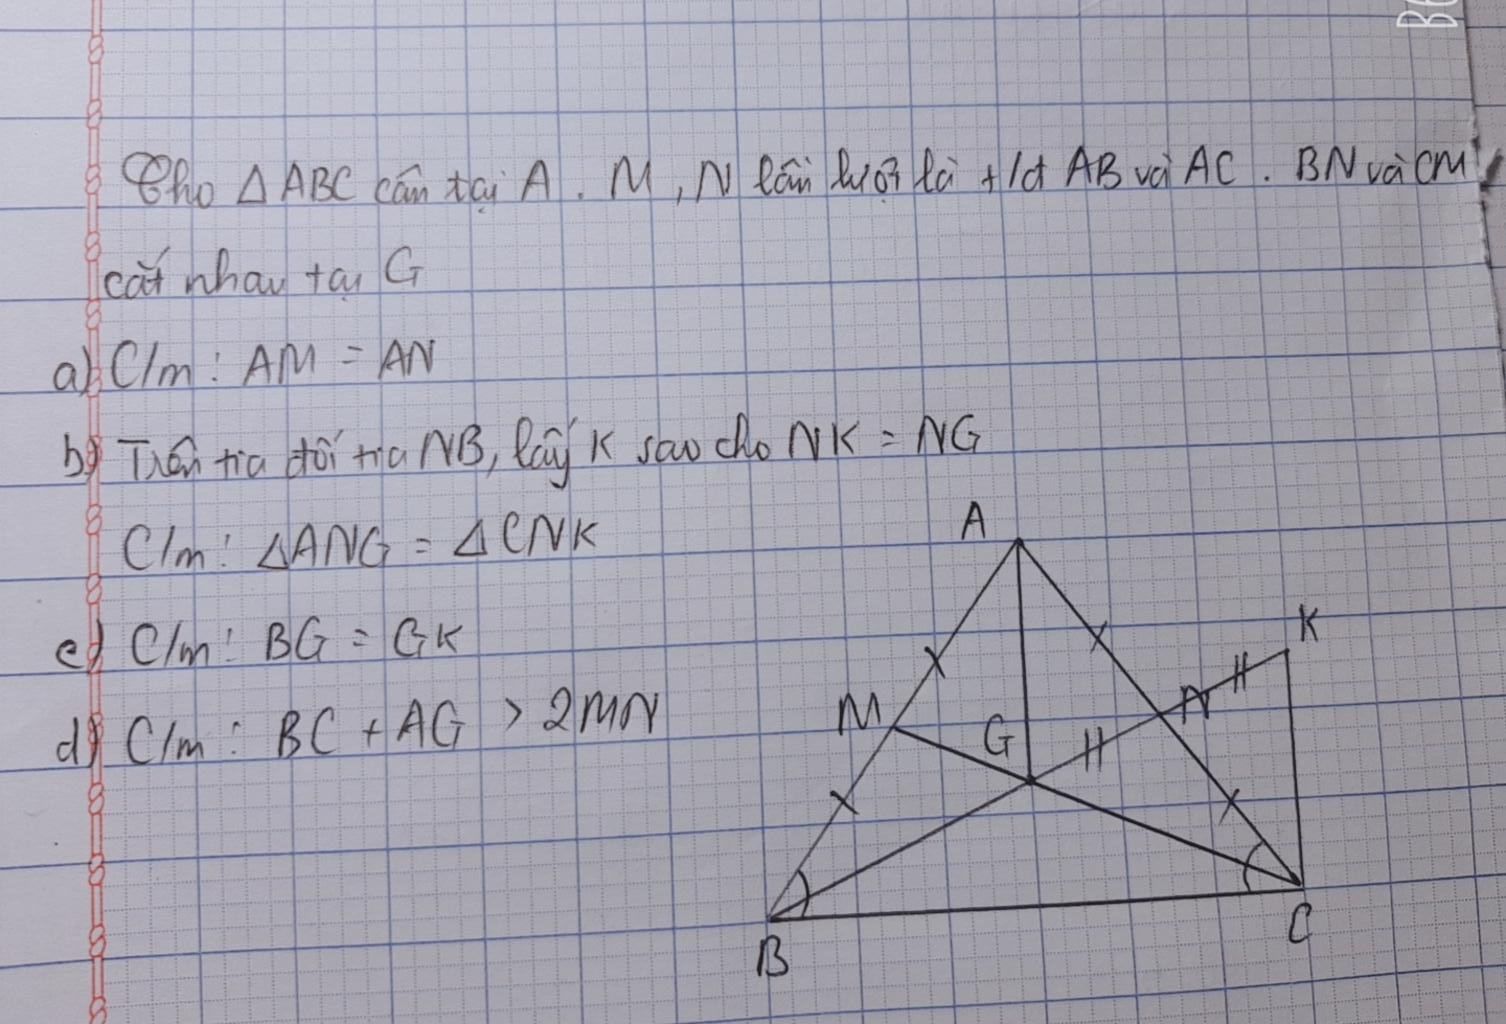 Cho △ABC cân tại A. M, N lần lượt là t/đ AB và AC. BN và CM
cắt nhau tại G
a) C/m: AM = AN
b) Trên tia đối tia NB, lấy K sao cho NK = NG
C/m: △ANG = △CNK
c) C/m: BG = GK
d) C/m: BC + AG > 2MN
A
K
M
N
G
B
C